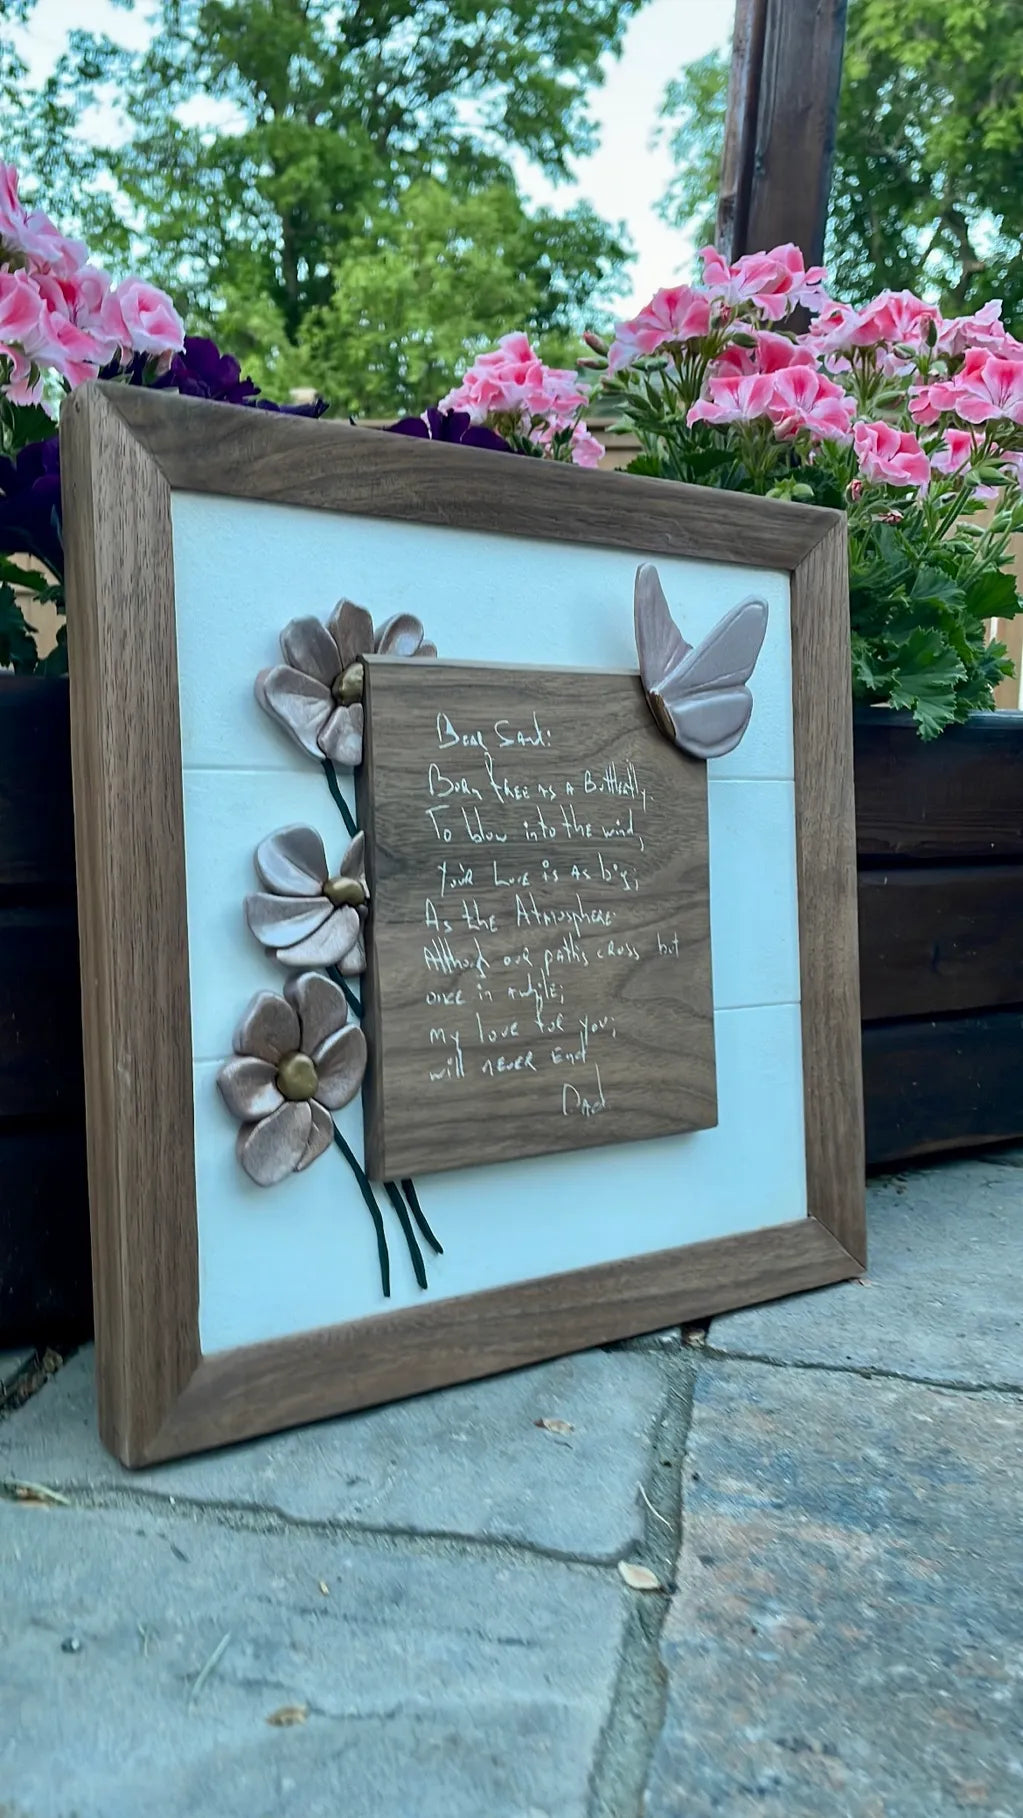 Dear
Born free as a Butterfly,
To blow into the wind,
Your Love is as big;
As the Atmosphere.
Although our paths cross but
once in awhile;
my love for you;
will never End
Dad